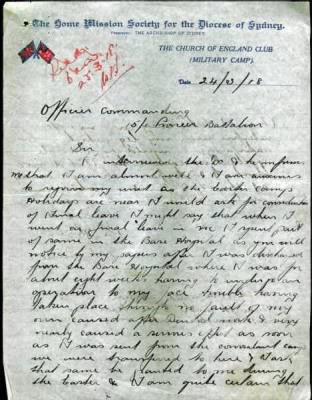 The Home Mission Society for the Diocese of Sydney.
President: THE ARCHBISHOP OF SYDNEY
THE CHURCH OF ENGLAND CLUB
(MILITARY CAMP).
25.3.18
Date 24/3/18
Officer Commanding
Pioneer Battalion
Sir
I interviewed the Dr & he informs
me that I am almost well & I am anxious
to rejoin my unit as the Easter Camp
Holidays are near I would ask for consideration
of Final leave I might say that when I
went on final leave in I spent part
of same in the Base Hospital as you will
notice by my papers after I was discharged
from the Base Hospital where I was for
about eight weeks having to undergo an
operation to my face trouble having
taken place through no fault of my
own caused after dental work & very
nearly caused a serious effect as soon
as I was sent from the convalescent camp
we were transferred to here & I ask
that same be granted to me during
the Easter & I am quite certain that